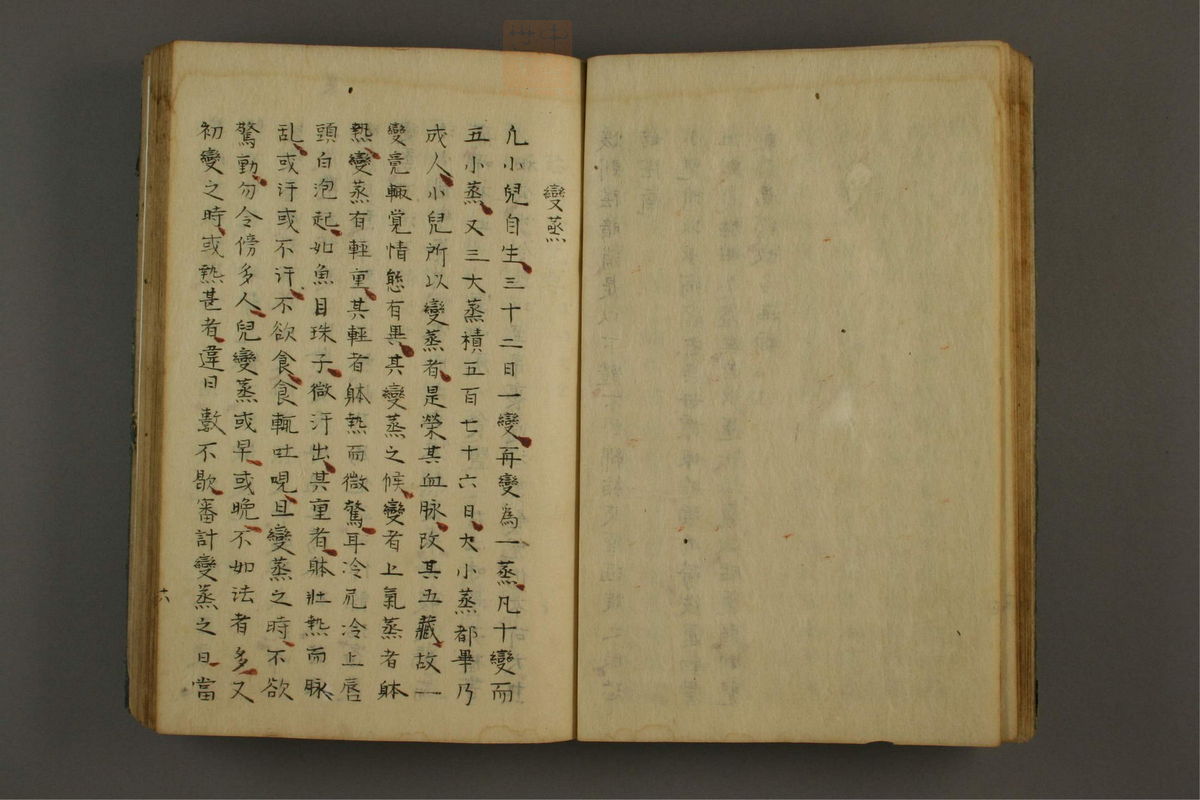 變蒸
凢小兒自生三十二日一變再變為一蒸凡十變而
五小蒸又三大蒸積五百七十六日大小蒸都畢乃
成人小兒所以變蒸者是榮其血脉改其五藏故一
變竟輙覚情態有異其變蒸之候變者上氣蒸者躰
熱變蒸有輕重其輕者躰熱而微驚耳冷尻冷上唇
頭白泡起如魚目珠子微汗出其重者躰壯熱而脉
乱或汗或不汗不欲食食輙吐哯且變蒸之時不欲
驚動勿令傍多人兒變蒸或早或晩不如法者多又
初變之時或熱甚者違日數不歇審計變蒸之日當